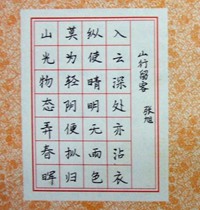 山光物态弄春晖
莫为轻阴便拟归
纵使晴明无雨色
入云深处亦沾衣
山行留客
张旭